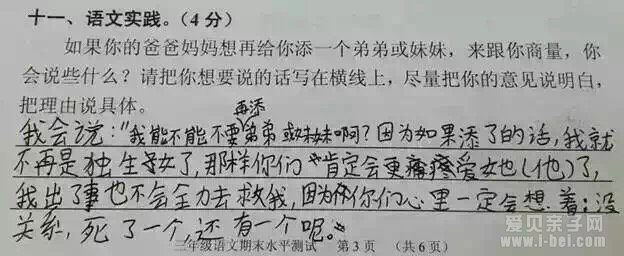 十一、语文实践。(4分)
如果你的爸爸妈妈想再给你添一个弟弟或妹妹，来跟你商量，你
会说些什么？请把你想要说的话写在横线上，尽量把你的意见说明白，
把理由说具体。
再添
我会说："我能不能不要弟弟或妹妹啊？因为如果添了的话，我就
不再是独生女了，那样你们肯定会更疼爱她(他)了，
我出了事也不会全力去救我，因为你们心里一定会想着：没
关系，死了一个，还有一个呢。"
三年级语文期末水平测试 第3页 (共6页)
爱贝亲子网
www.i-bei.com